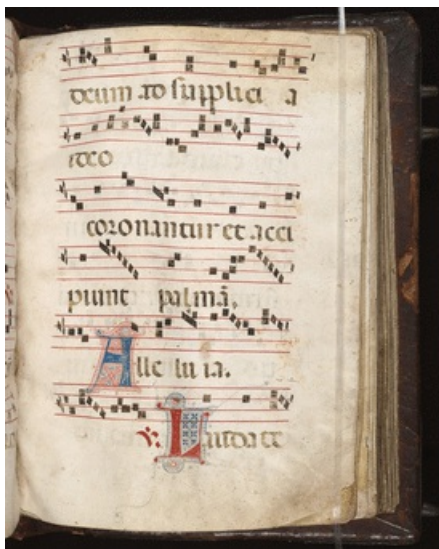 deum ad supplici a
ideo
coronantur et acci
piunt palmã.
Alle lu ia.
℣. Laudate